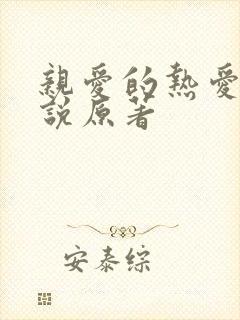 親愛的熱愛
說原著
安泰綜